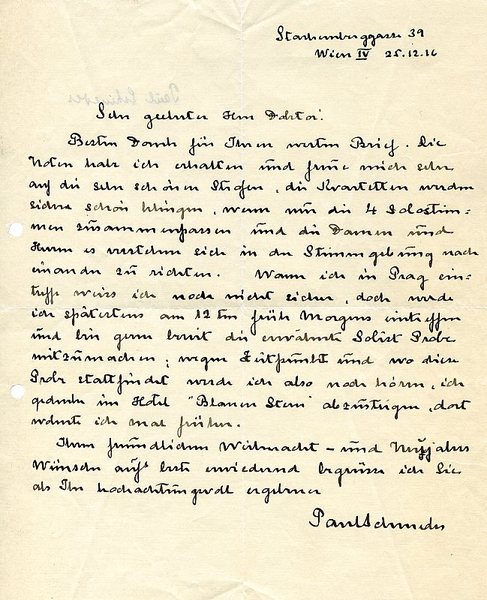 Starhemberggasse 39
Wien IV 25.12.16
Sehr geehrter Herr Doktor!
Besten Dank für Ihren werten Brief. Die
Noten habe ich erhalten und freue mich sehr
auf die sehr schönen Strofen, die Kvartetten werden
sicher schön klingen, wenn nur die 4 Solostim=
men zusammenpassen und die Damen und
Herrn es verstehen sich in der Stimmgebung nach
einander zu richten. Wann ich in Prag ein=
treffe weiss ich noch nicht sicher, doch werde
ich spätestens am 12ten früh Morgens eintreffen
und bin gern bereit die erwähnte Solist Probe
mitzumachen; wegen Zeitpunkt und wo diese
Probe stattfindet werde ich also noch hören, ich
gedenke im Hotel "Blauen Stern" abzusteigen, dort
wohnte ich mal früher.
Ihren freundlichen Weihnacht- und Neujahrs
Wünschen aufs beste erwiedernd begrüsse ich Sie
als Ihr hochachtungsvoll ergebener
Paul Schmedes